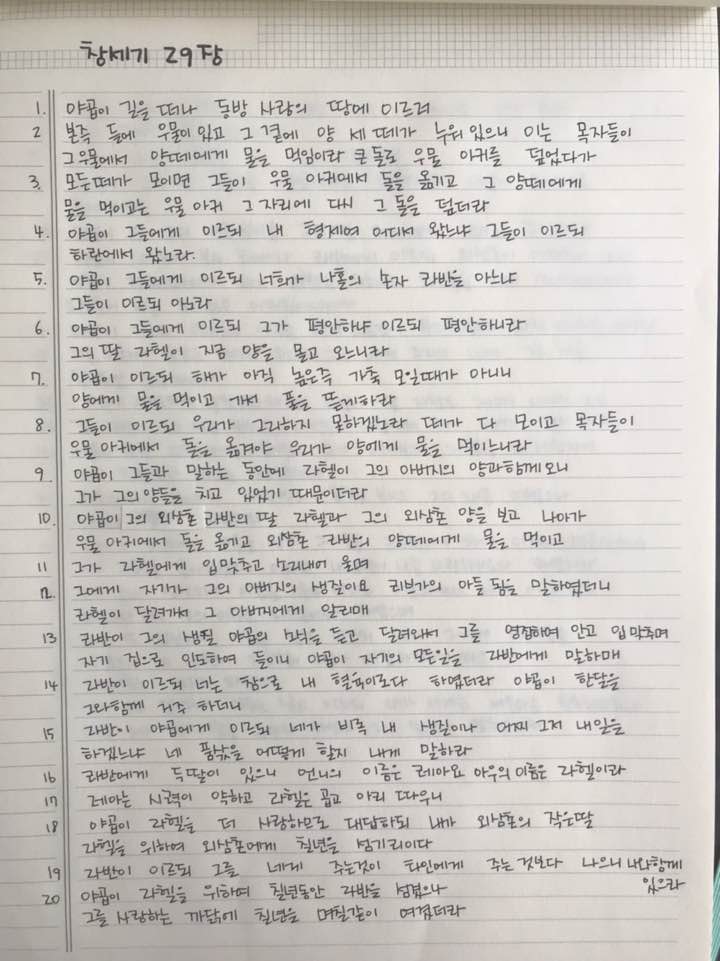 창세기 29장
1. 야곱이 길을 떠나 동방 사람의 땅에 이르러
2 본즉 들에 우물이 있고 그 곁에 양 세 떼가 누워 있으니 이는 목자들이
그 우물에서 양떼에게 물을 먹임이라 큰 돌로 우물 아귀를 덮었다가
3. 모든떼가 모이면 그들이 우물 아귀에서 돌을 옮기고 그 양떼에게
물을 먹이고는 우물 아귀 그 자리에 다시 그 돌을 덮더라
4. 야곱이 그들에게 이르되 내 형제여 어디서 왔느냐 그들이 이르되
하란에서 왔노라.
5. 야곱이 그들에게 이르되 너희가 나홀의 손자 라반을 아느냐
그들이 이르되 아노라
6. 야곱이 그들에게 이르되 그가 평안하냐 이르되 평안하니라
그의 딸 라헬이 지금 양을 몰고 오느니라
7. 야곱이 이르되 해가 아직 높은즉 가축 모일때가 아니니
양에게 물을 먹이고 가서 풀을 뜯게하라
8. 그들이 이르되 우리가 그리하지 못하겠노라 떼가 다 모이고 목자들이
우물 아귀에서 돌을 옮겨야 우리가 양에게 물을 먹이느니라
9. 야곱이 그들과 말하는 동안에 라헬이 그의 아버지의 양과함께 오니
그가 그의 양들을 치고 있었기 때문이더라
10. 야곱이 그의 외삼촌 라반의 딸 라헬과 그의 외삼촌 양을 보고 나아가
우물 아귀에서 돌을 옮기고 외삼촌 라반의 양떼에게 물을 먹이고
11 그가 라헬에게 입맞추고 소리내어 울며
12. 그에게 자기가 그의 아버지의 생질이요 리브가의 아들 됨을 말하였더니
라헬이 달려가서 그 아버지에게 알리매
13 라반이 그의 생질 야곱의 소식을 듣고 달려와서 그를 영접하여 안고 입 맞추며
자기 집으로 인도하여 들이니 야곱이 자기의 모든일을 라반에게 말하매
14 라반이 이르되 너는 참으로 내 혈육이로다 하였더라 야곱이 한달을
그와함께 거주 하더니
15 라반이 야곱에게 이르되 네가 비록 내 생질이나 어찌 그저 내 일을
하겠느냐 네 품삯을 어떻게 할지 내게 말하라
16 라반에게 두딸이 있으니 언니의 이름은 레아요 아우의 이름은 라헬이라
17 레아는 시력이 약하고 라헬은 곱고 아리 따우니
18 야곱이 라헬을 더 사랑하므로 대답하되 내가 외삼촌의 작은딸
라헬을 위하여 외삼촌에게 칠년을 섬기리이다
19 라반이 이르되 그를 네게 주는것이 타인에게 주는 것보다 나으니 나와함께
있으라
20 야곱이 라헬을 위하여 칠년동안 라반을 섬겼으나
그를 사랑하는 까닭에 칠년을 며칠같이 여겼더라